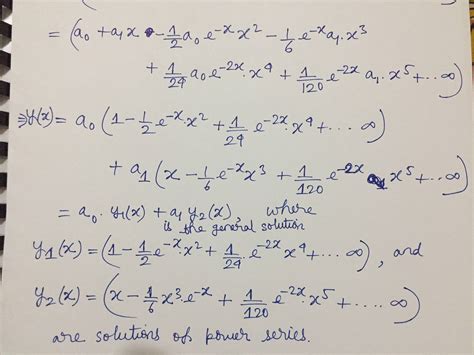 = (a₀ + a₁x - 1/2 a₀ e^-x x² - 1/6 e^-x a₁ x³
+ 1/24 a₀ e^-2x x⁴ + 1/120 e^-2x a₁ x⁵ + ... ∞)
⇒ y(x) = a₀ (1 - 1/2 e^-x x² + 1/24 e^-2x x⁴ + ... ∞)
+ a₁ (x - 1/6 e^-x x³ + 1/120 e^-2x x⁵ + ... ∞)
= a₀ · y₁(x) + a₁ y₂(x), where
is the general solution
y₁(x) = (1 - 1/2 e^-x x² + 1/24 e^-2x x⁴ + ... ∞), and
y₂(x) = (x - 1/6 x³ e^-x + 1/120 e^-2x x⁵ + .... ∞)
are solutions of power series.